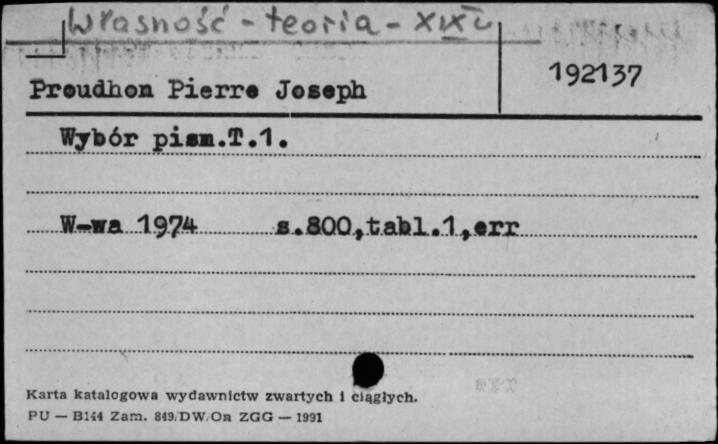 Własność - teoria - XIX w
Proudhon Pierre Joseph
192137
Wybór pism.T.1.
W-wa 1974 s.800,tabl.1,err
Karta katalogowa wydawnictw zwartych i ciągłych.
PU — B144 Zam. 849/DW/On ZGG — 1991